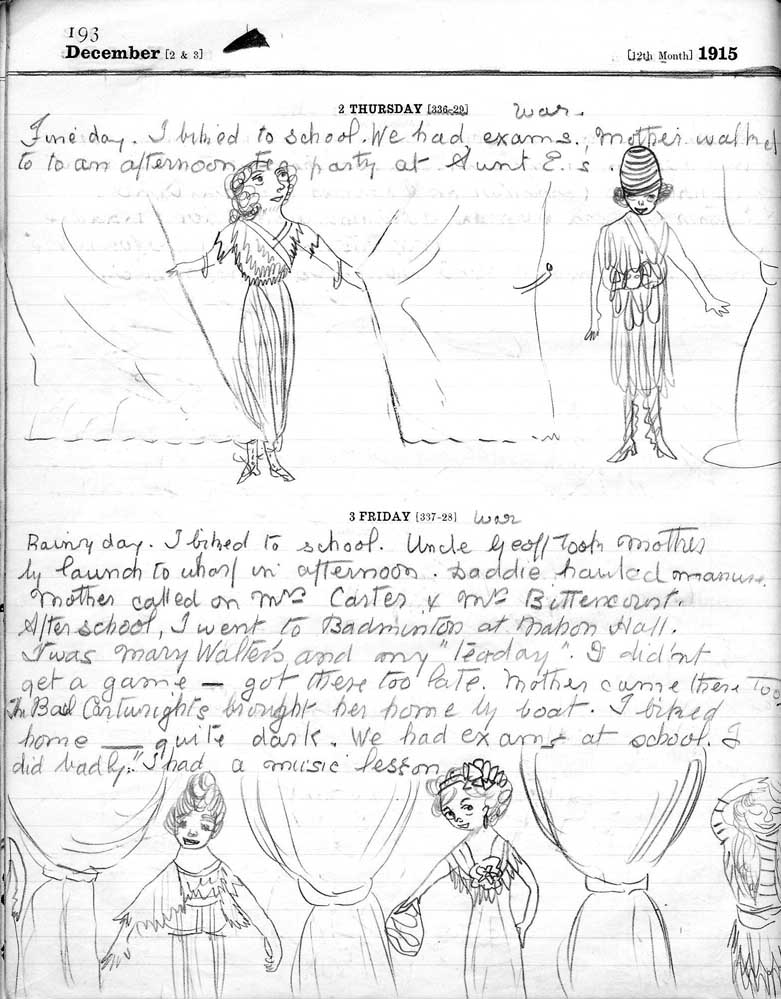 193
December [2 & 3]
[12th Month] 1915
2 THURSDAY [336-29] War.
Fine day. I biked to school. We had exams. Mother walked
to to an afternoon tea party at Aunt E.s.
3 FRIDAY [337-28] War
Rainy day. I biked to school. Uncle Geoff took mother
by launch to wharf in afternoon. Daddie hauled manure.
Mother called on Mrs Carter & Mrs Bittencourt.
After school, I went to Badminton at Mahon Hall.
Twas Mary Walters and my "Teaday". I did'nt
get a game — got there too late. Mother came there too.
The Cartwrights brought her home by boat. I biked
home — quite dark. We had exams at school. I
did badly. I had a music lesson